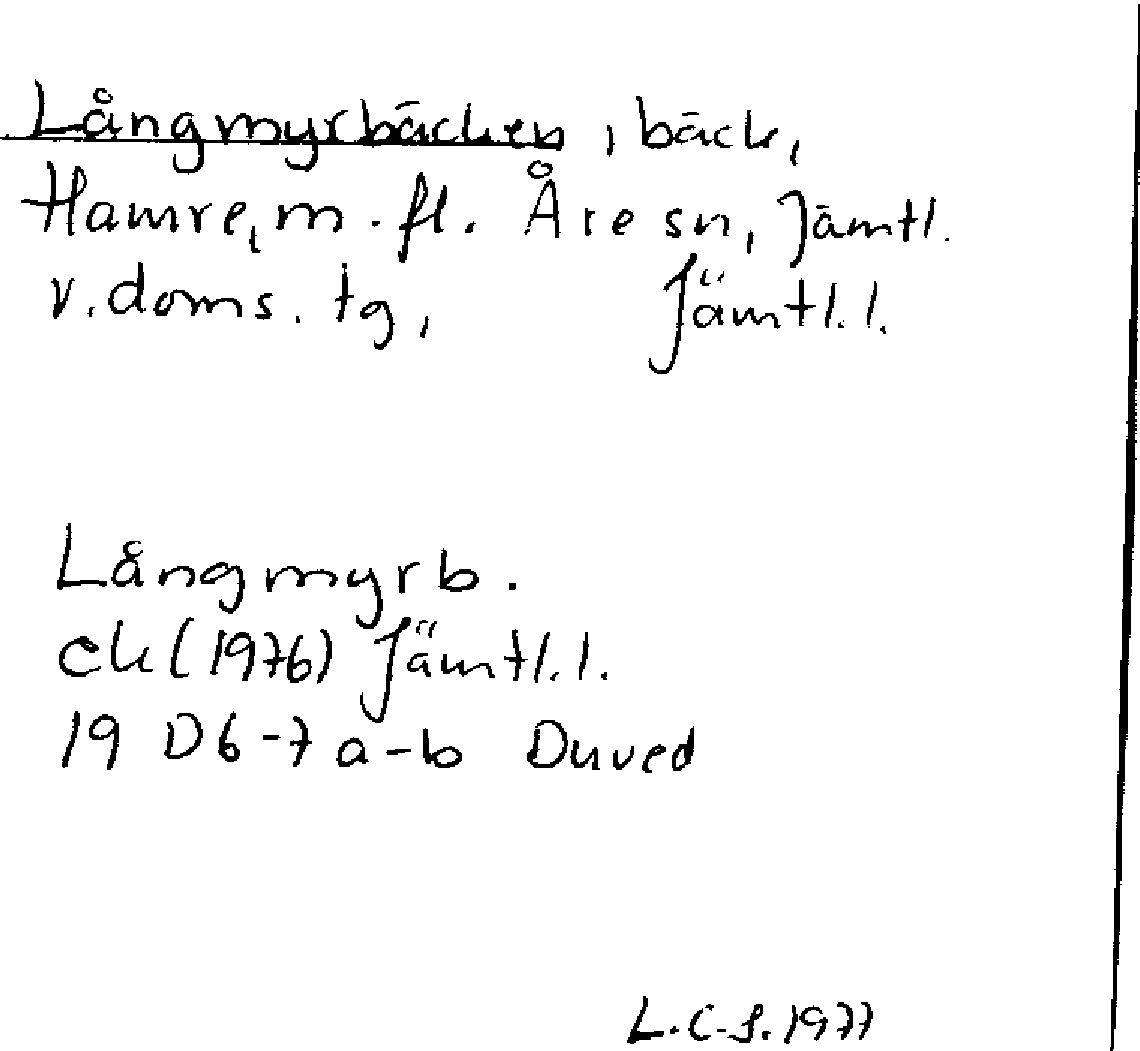 Långmyrbäcken, bäck,
Hamre, m. fl. Åre sn, Jämtl.
v. doms. tg, Jämtl. l.
Långmyrb.
ek (1976) Jämtl. l.
19 D 6-7 a-b Duved
L.C-S. 1977